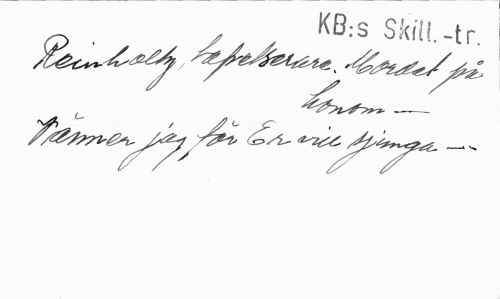 KB:s Skill.-tr.
Reinholtz, tapetserare. Mordet på
honom —
Vänner jag för Er vill sjunga —